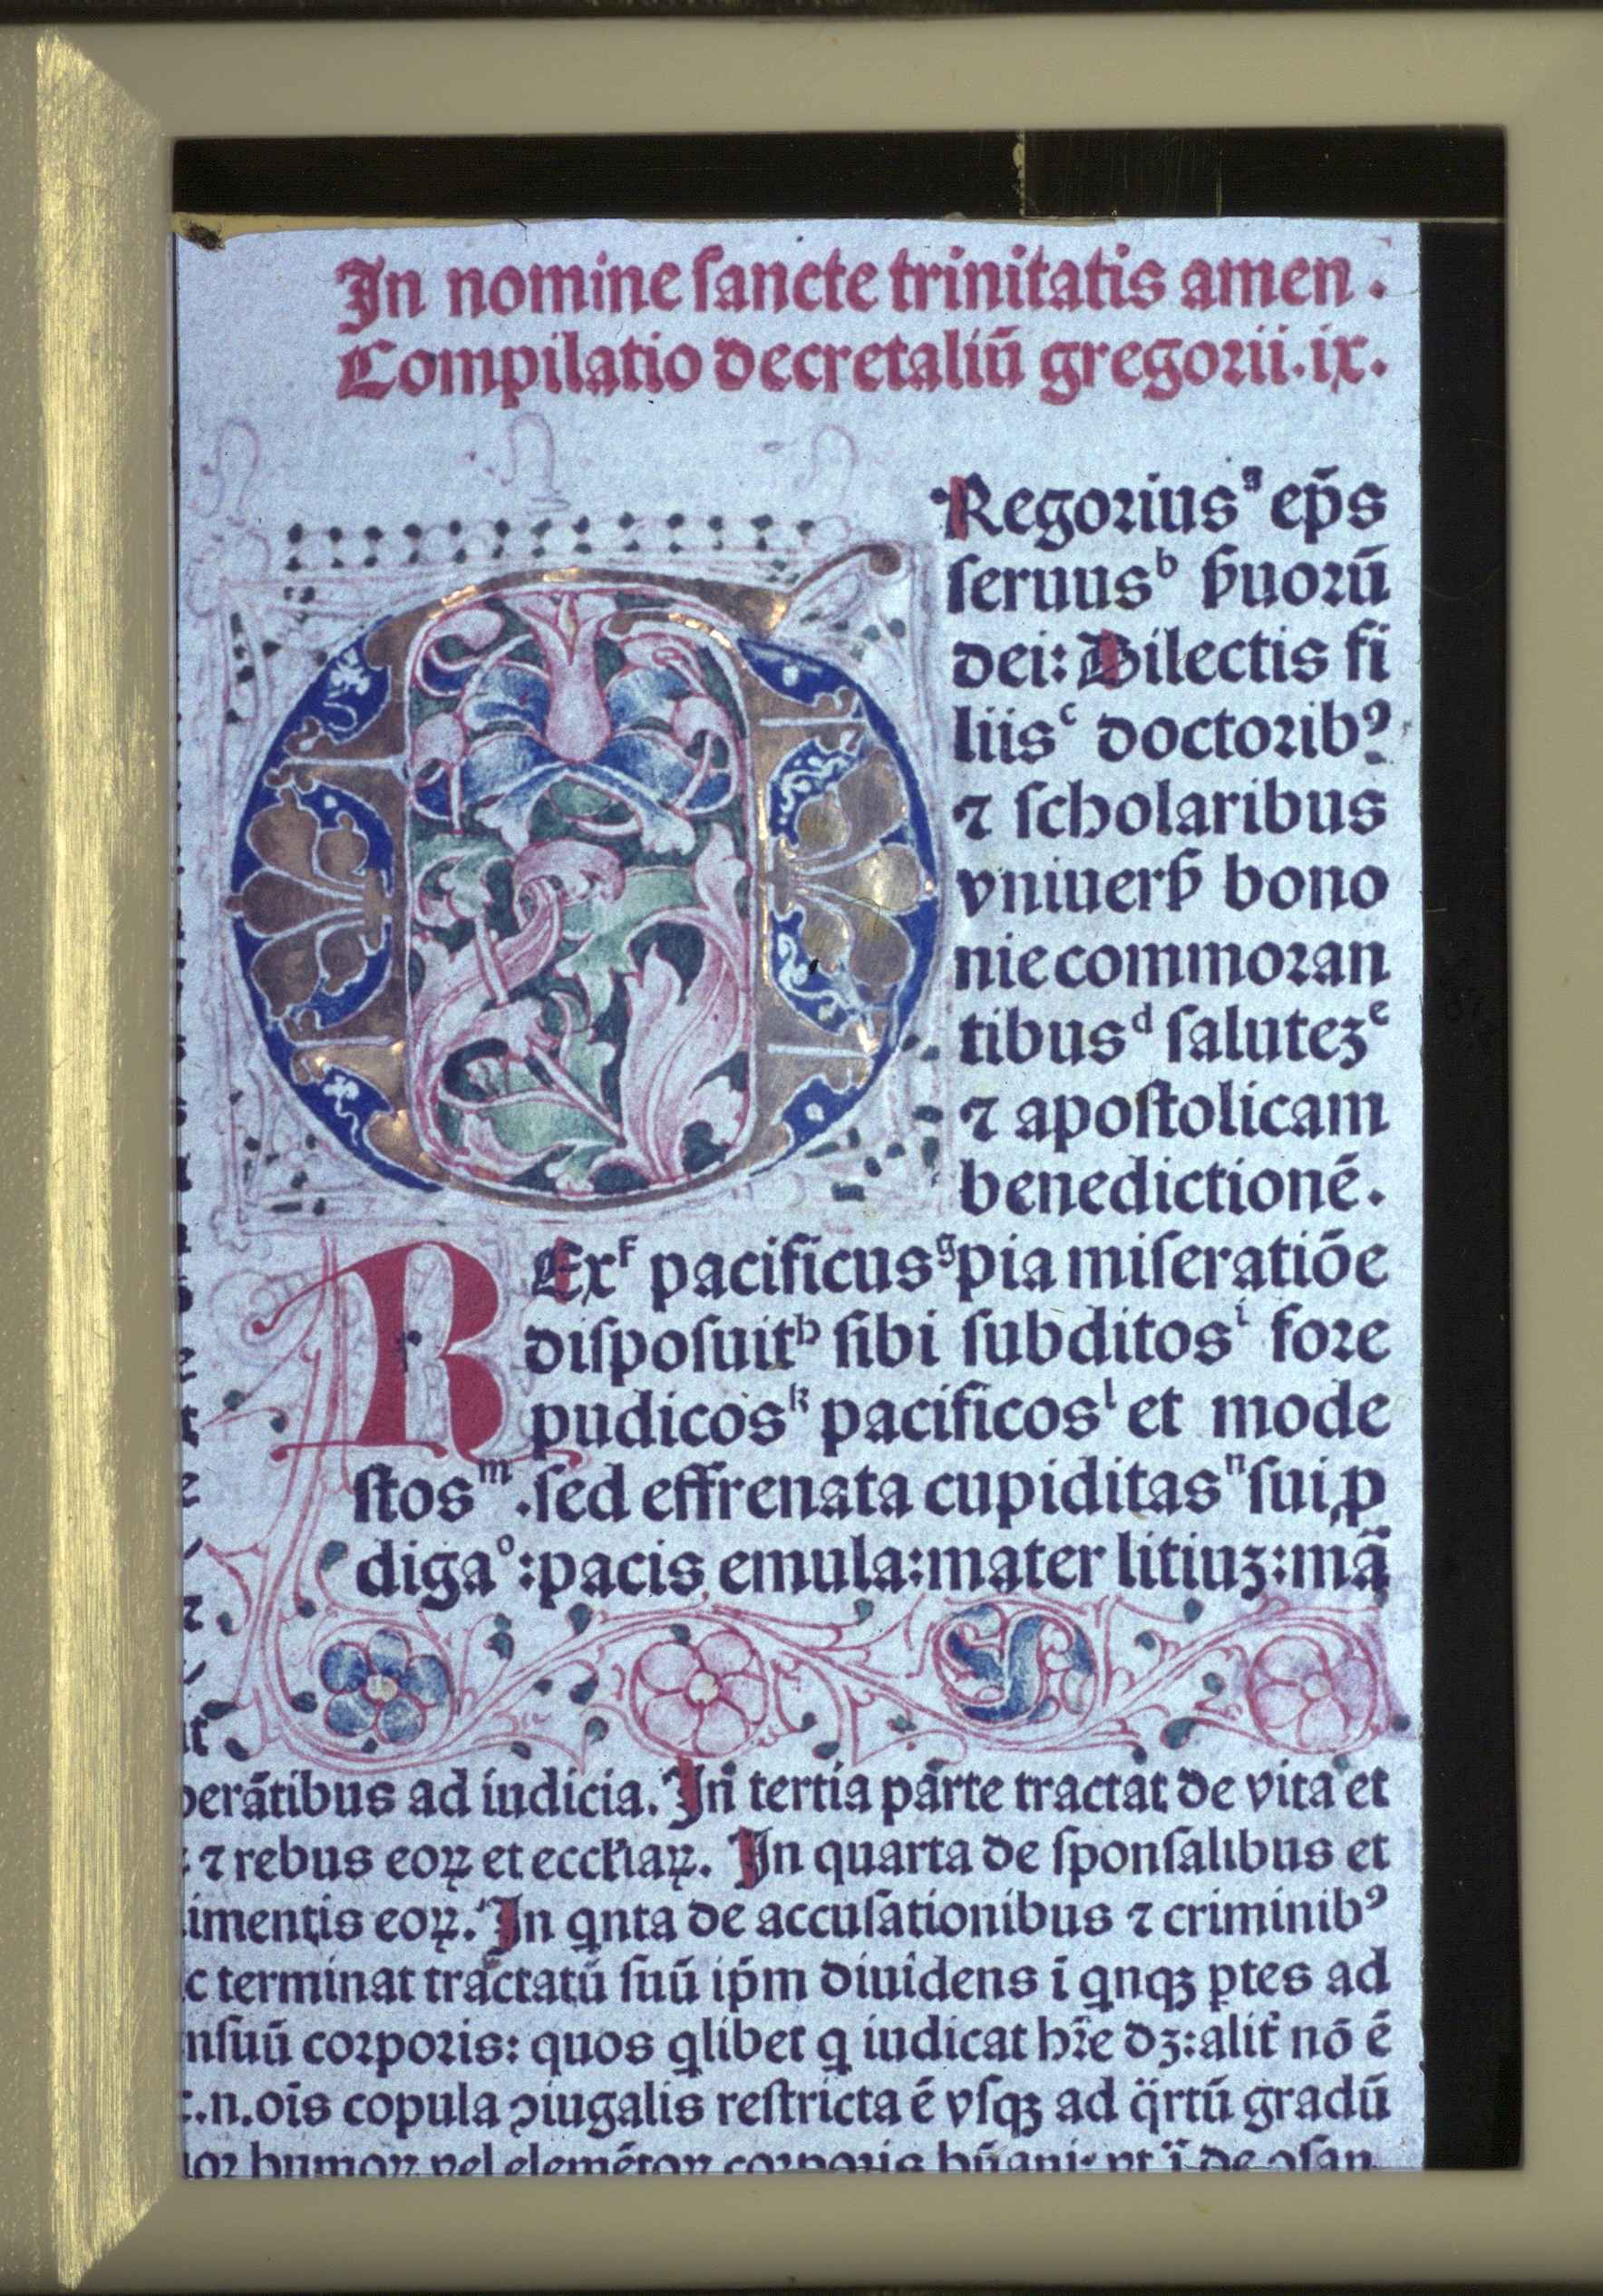 In nomine sancte trinitatis amen.
Compilatio decretaliū gregorii.ix.
Regorius a ep̄s
seruus b ẜuorū
dei: Dilectis fi
liis c doctoribꝰ
⁊ scholaribus
vniuerẜ bono
nie commoran
tibus d salutez e
⁊ apostolicam
benedictionē.
REx f pacificus g pia miseratiōe
disposuit h sibi subditos i fore
pudicos k pacificos l et mode
stos m .sed effrenata cupiditas n sui ꝓ
diga o :pacis emula:mater litiuz:mā
perātibus ad iudicia. In tertia parte tractat de vita et
⁊ rebus eoꝝ et eccl'iaꝝ. In quarta de sponsalibus et
imentis eoꝝ. In qnta de accusationibus ⁊ criminibꝰ
c terminat tractatū suū ip̄m diuidens ī qnqꝫ ꝑtes ad
nsuū corporis: quos qlibet q iudicat hr̄e dꝫ:alit̄ nō ē
.n.oīs copula ꝯiugalis restricta ē vsqꝫ ad qrtū gradū